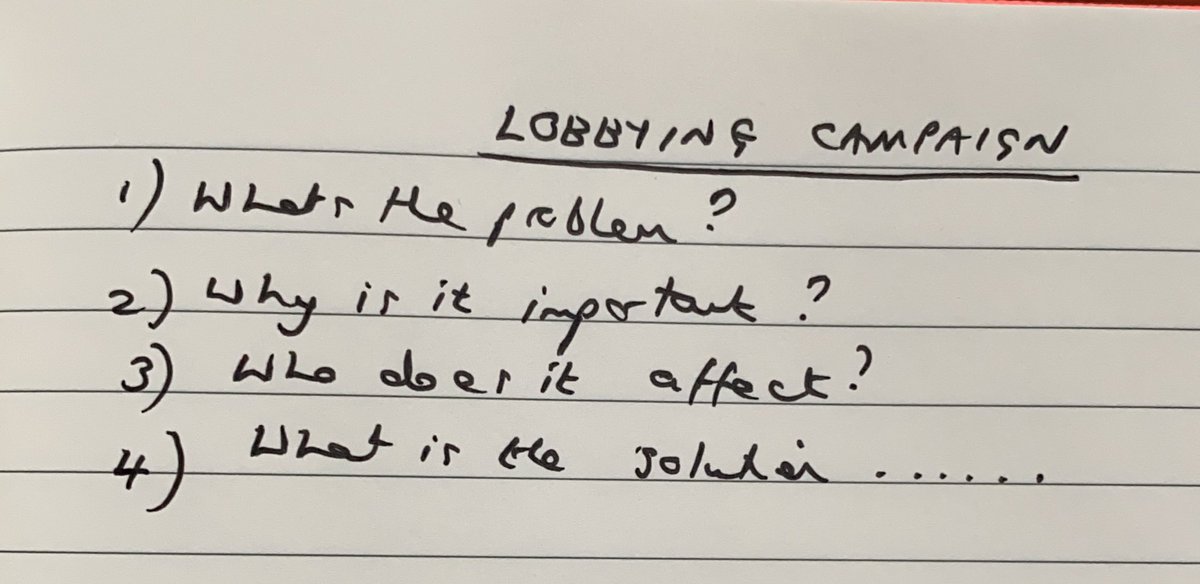 LOBBYING CAMPAIGN
1) Whats the problem?
2) Why is it important?
3) Who does it affect?
4) What is the solution ......